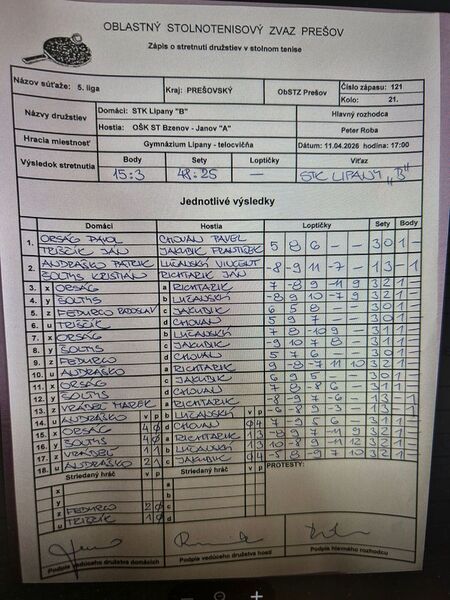 OBLASTNÝ STOLNOTENISOVÝ ZVAZ PREŠOV
Zápis o stretnutí družstiev v stolnom tenise
Názov súťaže: 5. liga Kraj: PREŠOVSKÝ ObSTZ Prešov Číslo zápasu: 121
Kolo: 21.
Názvy družstiev Domáci: STK Lipany "B" Hlavný rozhodca
Hostia: OŠK ST Bzenov - Janov "A" Peter Roba
Hracia miestnosť Gymnázium Lipany - telocvičňa Dátum: 11.04.2026 hodina: 17:00
Výsledok stretnutia Body Sety Loptičky Víťaz
15:3 48:25 — STK LIPANY „B"
Jednotlivé výsledky
Domáci Hostia Loptičky Sety Body
1. ORSÁG PAVOL CHOVAN PAVEL 5 8 6 — — 3 0 1 —
TRIŠČÍK JÁN JAKUBIK FRANTIŠEK
2. ANDRAŠKO PATRIK LUČANSKÝ VINCENT -8 -9 11 -7 — 1 3 — 1
ŠOLTYS KRISTIÁN RICHTARIK JÁN
3. x ORSÁG a RICHTARIK 7 -8 -9 11 9 3 2 1 —
4. y ŠOLTYS b LUČANSKÝ -8 9 10 -7 9 3 2 1 —
5. z FEDURCO RADOSLAV c JAKUBIK 6 5 8 — — 3 0 1 —
6. u TRIŠČÍK d CHOVAN 5 9 7 — — 3 0 1 —
7. x ORSÁG b LUČANSKÝ 7 8 -10 9 — 3 1 1 —
8. y ŠOLTYS c JAKUBIK -9 10 7 8 — 3 1 1 —
9. z FEDURCO d CHOVAN 5 7 6 — — 3 0 1 —
10. u ANDRAŠKO a RICHTARIK 9 -8 -7 11 10 3 2 1 —
11. x ORSÁG c JAKUBIK 6 9 5 — — 3 0 1 —
12. y ŠOLTYS d CHOVAN 7 8 -8 6 — 3 1 1 —
13. z VRÁBEL MAREK a RICHTARIK -8 -9 7 -6 — 1 3 — 1
14. u ANDRAŠKO v p b LUČANSKÝ v p -6 -8 9 -3 — 1 3 — 1
15. x ORSÁG 4 0 d CHOVAN 0 4 7 -9 5 6 — 3 1 1 —
16. y ŠOLTYS 4 0 a RICHTARIK 1 3
17. z VRÁBEL b LUČANSKÝ 1 3
18. u ANDRAŠKO 2 1 c JAKUBIK 0 4
Striedaný hráč v p Striedaný hráč v p PROTESTY:
x a
y b
z FEDURCO 2 0 c
u TRIŠČÍK 1 0 d
Podpis vedúceho družstva domácich Podpis vedúceho družstva hostí Podpis hlavného rozhodcu